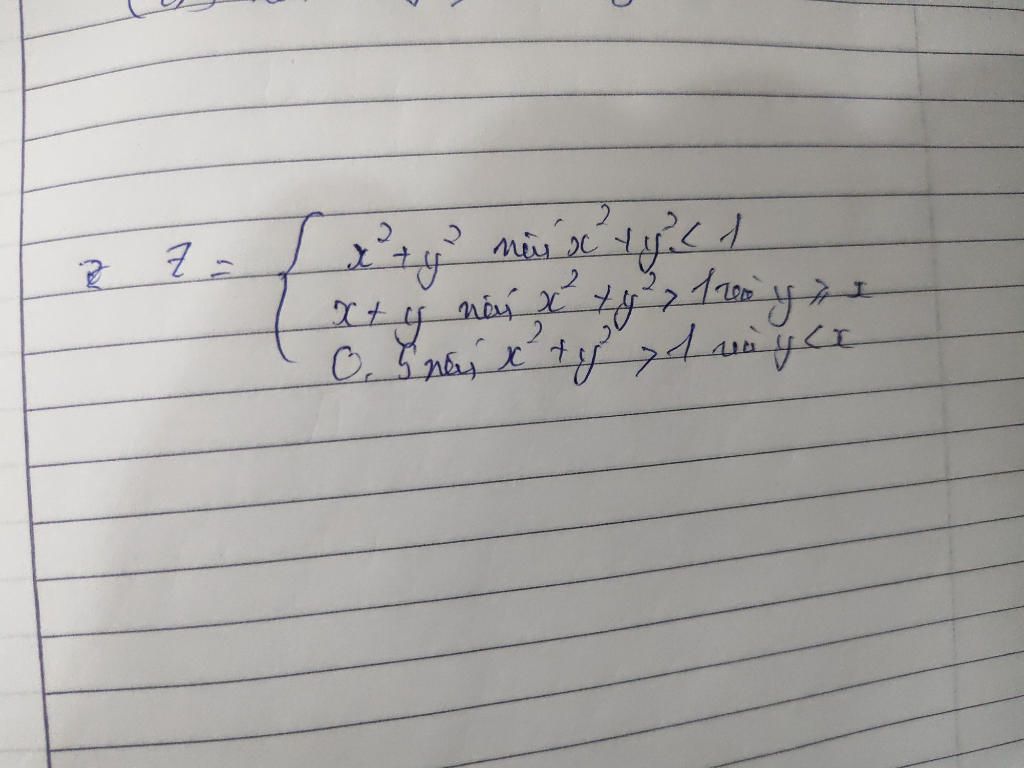 z Z = { x² + y² nếu x² + y² < 1
x + y nếu x² + y² > 1 và y ≥ x
0.5 nếu x² + y² > 1 và y < x